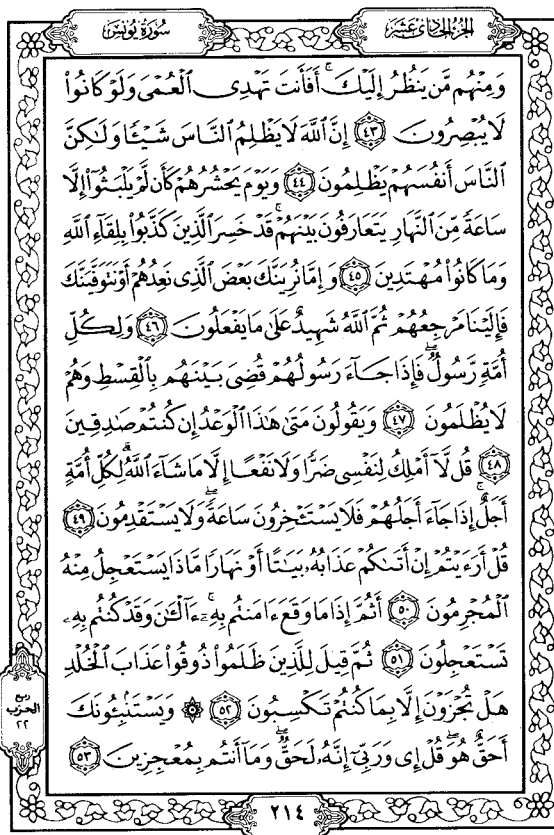 الجزء الحادي عشر
سورة يونس
وَمِنْهُم مَّن يَنظُرُ إِلَيْكَ ۚ أَفَأَنتَ تَهْدِى الْعُمْىَ وَلَوْ كَانُوا۟
لَا يُبْصِرُونَ ﴿٤٣﴾ إِنَّ اللَّهَ لَا يَظْلِمُ النَّاسَ شَيْـًٔا وَلَـٰكِنَّ
النَّاسَ أَنفُسَهُمْ يَظْلِمُونَ ﴿٤٤﴾ وَيَوْمَ يَحْشُرُهُمْ كَأَن لَّمْ يَلْبَثُوٓا۟ إِلَّا
سَاعَةً مِّنَ النَّهَارِ يَتَعَارَفُونَ بَيْنَهُمْ ۚ قَدْ خَسِرَ الَّذِينَ كَذَّبُوا۟ بِلِقَآءِ اللَّهِ
وَمَا كَانُوا۟ مُهْتَدِينَ ﴿٤٥﴾ وَإِمَّا نُرِيَنَّكَ بَعْضَ الَّذِى نَعِدُهُمْ أَوْ نَتَوَفَّيَنَّكَ
فَإِلَيْنَا مَرْجِعُهُمْ ثُمَّ اللَّهُ شَهِيدٌ عَلَىٰ مَا يَفْعَلُونَ ﴿٤٦﴾ وَلِكُلِّ
أُمَّةٍ رَّسُولٌ ۖ فَإِذَا جَآءَ رَسُولُهُمْ قُضِىَ بَيْنَهُم بِالْقِسْطِ وَهُمْ
لَا يُظْلَمُونَ ﴿٤٧﴾ وَيَقُولُونَ مَتَىٰ هَـٰذَا الْوَعْدُ إِن كُنتُمْ صَـٰدِقِينَ
﴿٤٨﴾ قُل لَّآ أَمْلِكُ لِنَفْسِى ضَرًّا وَلَا نَفْعًا إِلَّا مَا شَآءَ اللَّهُ ۗ لِكُلِّ أُمَّةٍ
أَجَلٌ ۚ إِذَا جَآءَ أَجَلُهُمْ فَلَا يَسْتَـْٔخِرُونَ سَاعَةً ۖ وَلَا يَسْتَقْدِمُونَ ﴿٤٩﴾
قُلْ أَرَءَيْتُمْ إِنْ أَتَىٰكُمْ عَذَابُهُۥ بَيَـٰتًا أَوْ نَهَارًا مَّاذَا يَسْتَعْجِلُ مِنْهُ
الْمُجْرِمُونَ ﴿٥٠﴾ أَثُمَّ إِذَا مَا وَقَعَ ءَامَنتُم بِهِۦٓ ۚ ءَآلْـَٔـٰنَ وَقَدْ كُنتُم بِهِۦ
تَسْتَعْجِلُونَ ﴿٥١﴾ ثُمَّ قِيلَ لِلَّذِينَ ظَلَمُوا۟ ذُوقُوا۟ عَذَابَ الْخُلْدِ
هَلْ تُجْزَوْنَ إِلَّا بِمَا كُنتُمْ تَكْسِبُونَ ﴿٥٢﴾ ۞ وَيَسْتَنۢبِـُٔونَكَ
أَحَقٌّ هُوَ ۖ قُلْ إِى وَرَبِّىٓ إِنَّهُۥ لَحَقٌّ ۖ وَمَآ أَنتُم بِمُعْجِزِينَ ﴿٥٣﴾
ربع
الحزب
٢٢
٢١٤